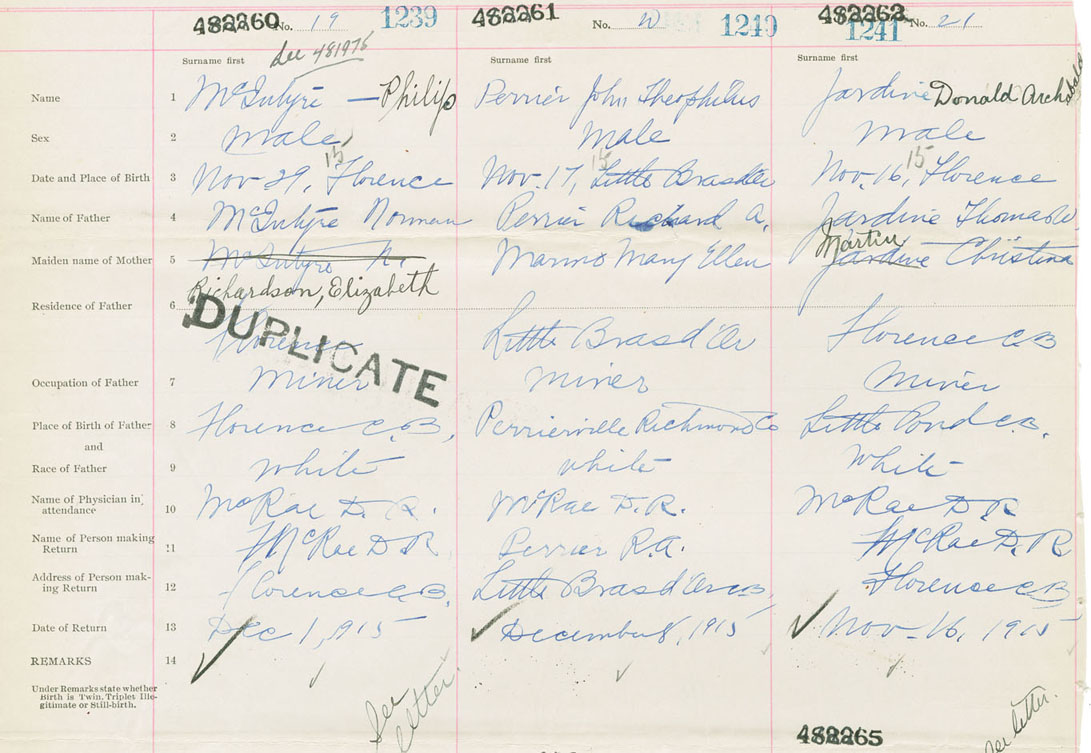 482260 No. 19 1239
482261 No. W 1240
482262 No. 21 1241
See 481975
Surname first Surname first Surname first
Name 1 McIntyre — Philip Perrier John Theophilus Jardine Donald Archabald
Sex 2 Male Male Male
15 15 15
Date and Place of Birth 3 Nov 29, Florence Nov. 17, Little Brasd'or Nov. 16, Florence
Name of Father 4 McIntyre Norman Perrier Richard A. Jardine Thomas W
Martin
Maiden name of Mother 5 McIntyre N. Manno Mary Ellen Jardine Christina
Richardson, Elizabeth
Residence of Father 6
DUPLICATE
Florence Little Brasd'Or Florence C.B
Occupation of Father 7 Miner Miner Miner
Place of Birth of Father 8 Florence C.B, Perrierville Richmond Co Little Pond C.B.
and
Race of Father 9 White White White
Name of Physician in attendance 10 McRae D. R. McRae D.R. McRae D. R
Name of Person making Return 11 McRae D R Perrier R.A. McRae D. R
Address of Person making Return 12 Florence C.B. Little Brasd'Or C.B, Florence C.B
Date of Return 13 Dec 1, 1915 December 8, 1915 Nov-16, 1915
REMARKS 14
Under Remarks state whether
Birth is Twin, Triplet Ille-
gitimate or Still-birth.
See letter
See letter.
482265